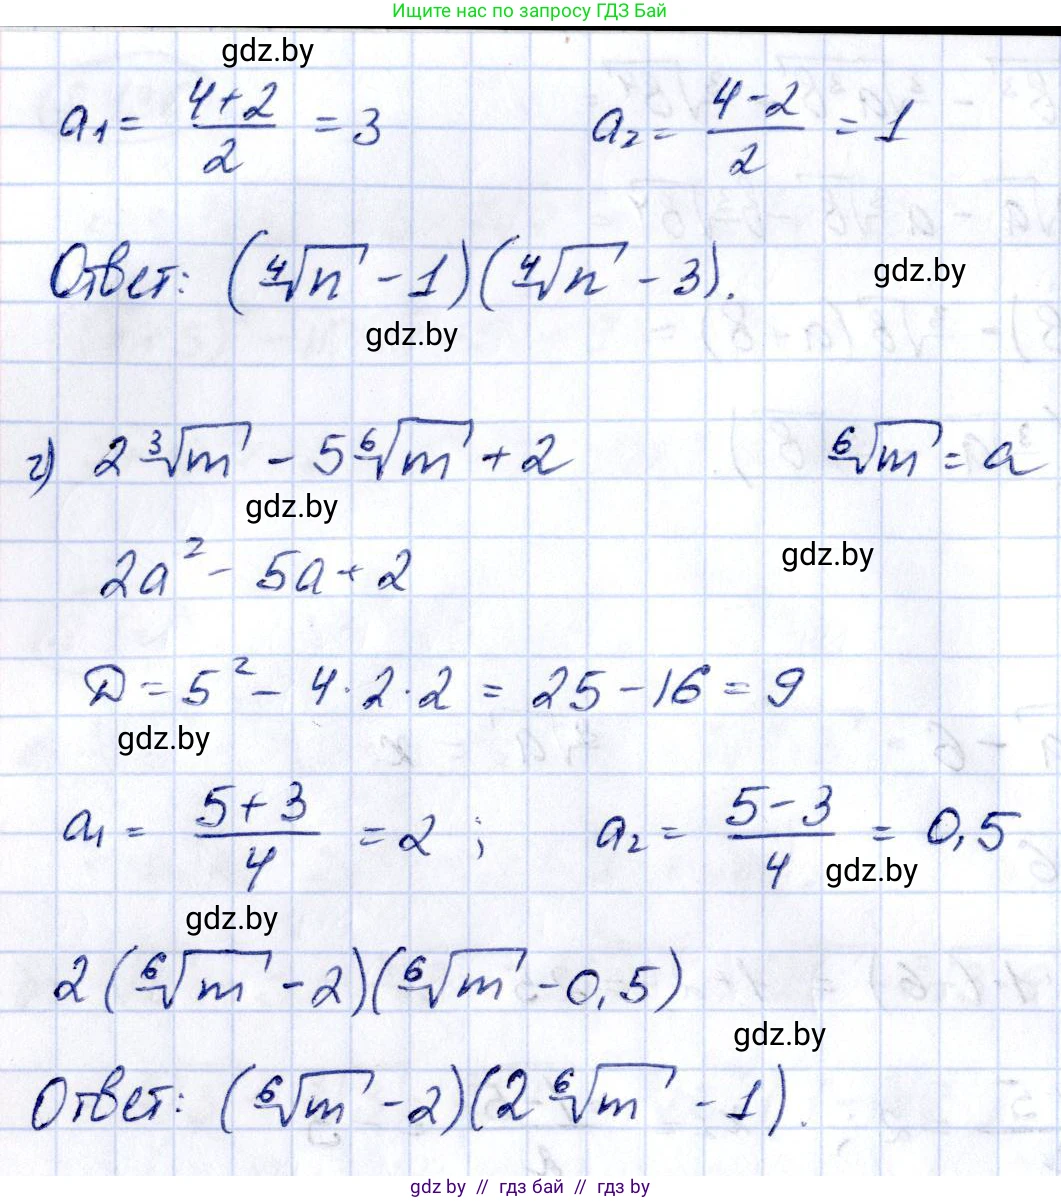 Ищите нас по запросу ГДЗ Бай
gdz.by
a₁ = (4+2)/2 = 3 a₂ = (4-2)/2 = 1
Ответ: (⁴√n - 1)(⁴√n - 3).
gdz.by
gdz.by
г) 2³√m - 5⁶√m + 2 ⁶√m = a
gdz.by
2a² - 5a + 2
gdz.by
D = 5² - 4·2·2 = 25 - 16 = 9
gdz.by
a₁ = (5+3)/4 = 2; a₂ = (5-3)/4 = 0,5
gdz.by
gdz.by
2(⁶√m - 2)(⁶√m - 0,5)
gdz.by
Ответ: (⁶√m - 2)(2⁶√m - 1).
gdz by // гдз бай // gdz by